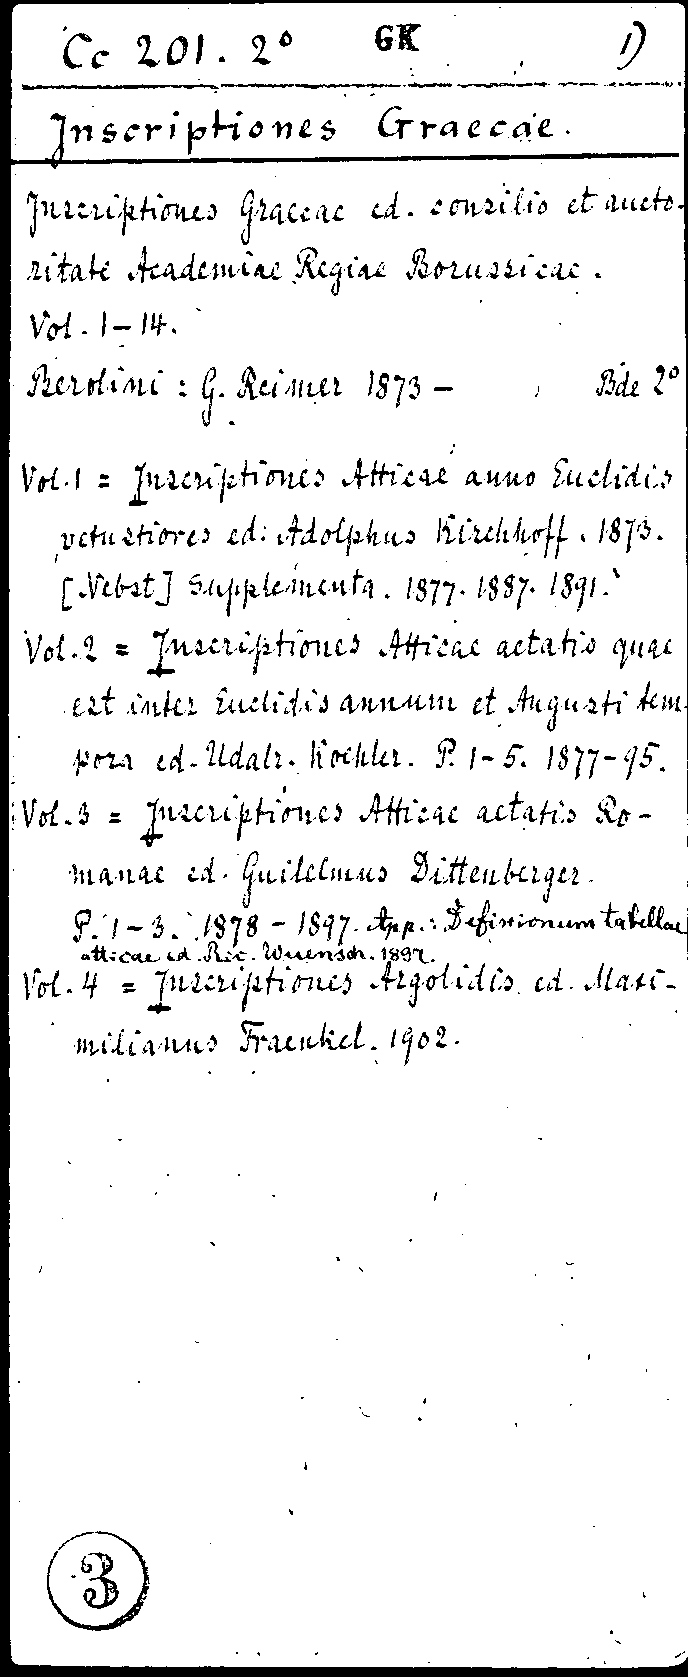 Cc 201. 2° GK 1)
Inscriptiones Graecae.
Inscriptiones Graecae ed. consilio et aucto-
ritate Academiae Regiae Borussicae.
Vol. 1-14.
Berolini: G. Reimer 1873- Bde 2°
Vol. 1 = Inscriptiones Atticae anno Euclidis
vetustiores ed: Adolphus Kirchhoff. 1873.
[Nebst] Supplementa. 1877. 1887. 1891.
Vol. 2 = Inscriptiones Atticae aetatis quae
est inter Euclidis annum et Augusti tem-
pora ed. Udalr. Koehler. P. 1-5. 1877-95.
Vol. 3 = Inscriptiones Atticae aetatis Ro-
manae ed. Guilelmus Dittenberger.
P. 1-3. 1878-1897. App.: Defixionum tabellae
atticae ed. Ric. Wuensch. 1897.
Vol. 4 = Inscriptiones Argolidis ed. Maxi-
milianus Fraenkel. 1902.
3